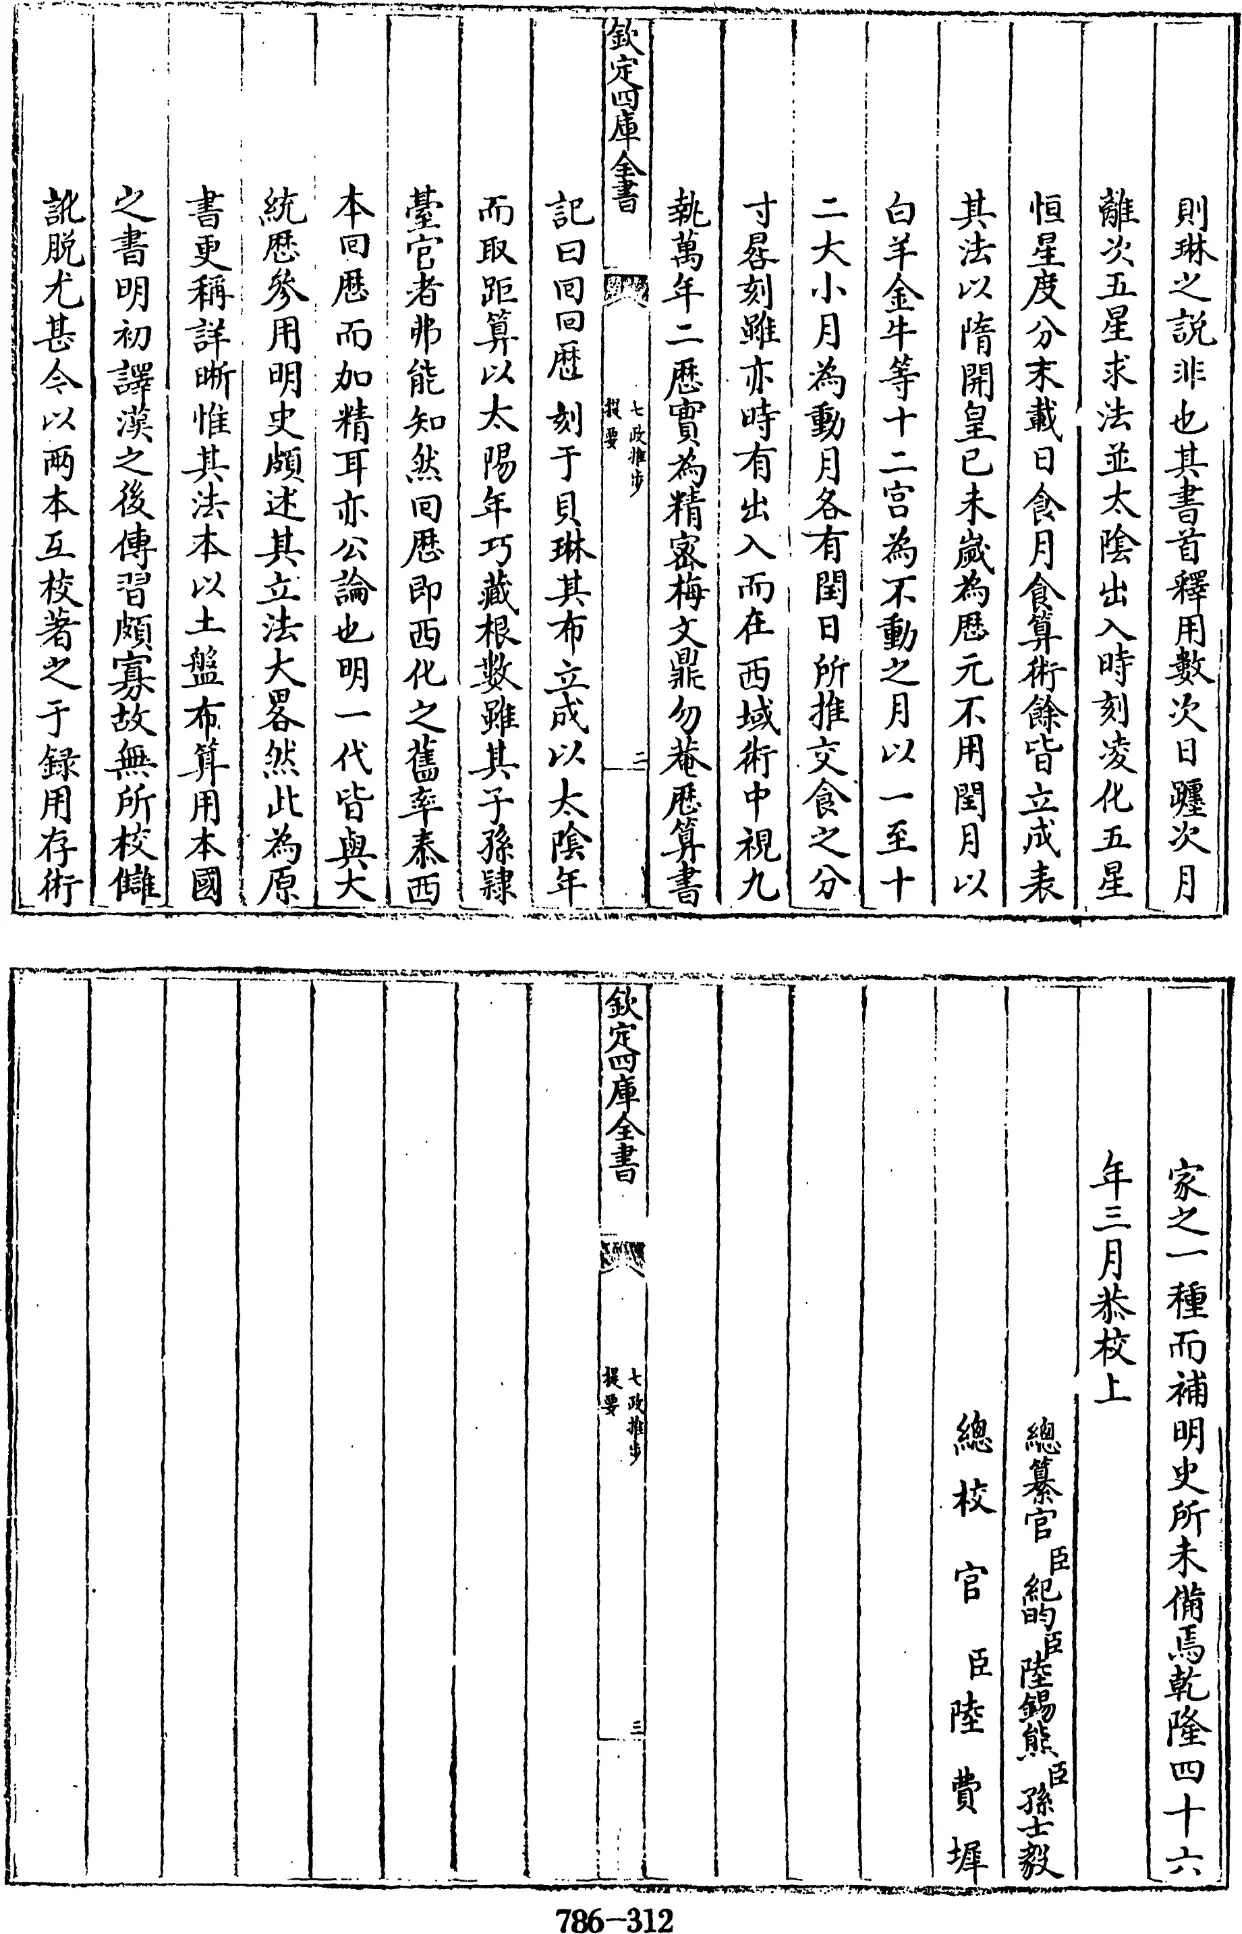 則琳之説非也其書首釋用數次日躔次月
離次五星求法並太陰出入時刻凌犯五星
恒星度分末載日食月食算術餘皆立成表
其法以隋開皇已未歲為厯元不用閏月以
白羊金牛等十二宫為不動之月以一至十
二大小月為動月各有閏日所推交食之分
寸晷刻雖亦時有出入而在西域術中視九
執萬年二厯實為精宻梅文鼎勿菴厯算書
欽定四庫全書
七政推步
提要
二
記曰回回厯刻于貝琳其布立成以太陰年
而取距算以太陽年巧藏根數雖其子孫隷
臺官者弗能知然回厯即西化之舊率泰西
本回厯而加精耳亦公論也明一代皆與大
統厯參用明史頗述其立法大畧然此為原
書更稱詳晰惟其法本以土盤布算用本國
之書明初譯漢之後傳習頗寡故無所校讎
訛脱尤甚今以兩本互校著之于録用存術
家之一種而補明史所未備焉乾隆四十六
年三月恭校上
總纂官臣紀昀臣陸錫熊臣孫士毅
總校官臣陸費墀
欽定四庫全書
七政推步
提要
三
786-312